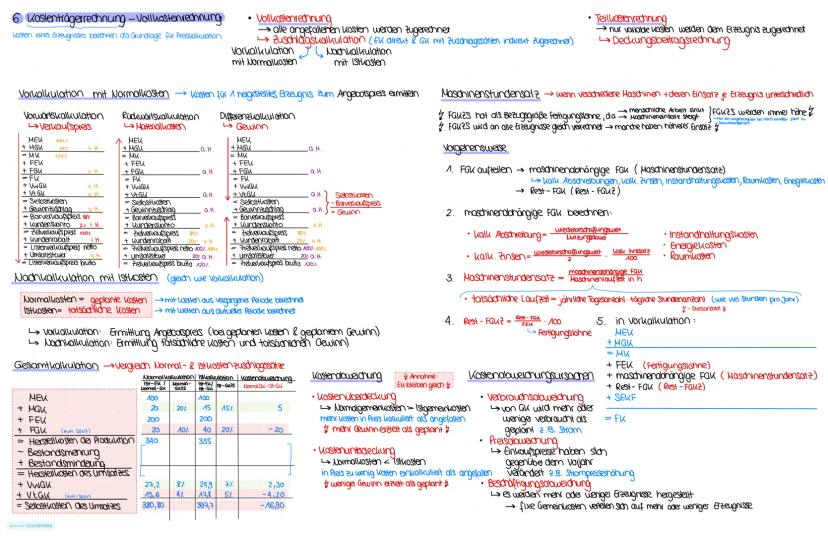 6 Kostenträgerrechnung – Vollkostenrechnung
Kosten eines Erzeugnisses berechnen als Grundlage für Preiskalkulation
• Vollkostenrechnung
→ alle angefallenen Kosten werden zugerechnet
→ Zuschlagskalkulation (EK direkt & GK mit Zuschlagssätzen indirekt zugerechnet)
Vorkalkulation Nachkalkulation
mit Normalkosten mit Istkosten
• Teilkostenrechnung
→ nur variable Kosten werden dem Erzeugnis zugerechnet
→ Deckungsbeitragsrechnung
Vorkalkulation mit Normalkosten → Kosten für 1 hergestelltes Erzeugnis zum Angebotspreis ermitteln
Vorwärtskalkulation
↳ Verkaufspreis
MEK 100%
+ MGK v.H.
= MK
+ FEK
+ FGK v.H.
= FK
+ VwGK v.H.
+ VtGK v.H.
= Selbstkosten
+ Gewinnzuschlag v.H.
= Barverkaufspreis
+ Kundenskonto i.H.
= Zielverkaufspreis
+ Kundenrabatt i.H.
= Listenverkaufspreis netto
+ Umsatzsteuer v.H.
= Listenverkaufspreis brutto
Rückwärtskalkulation
↳ Materialkosten
MEK
+ MGK a.H.
= MK
+ FEK
+ FGK a.H.
= FK
+ VwGK
+ VtGK a.H.
= Selbstkosten
+ Gewinnzuschlag a.H.
= Barverkaufspreis
+ Kundenskonto v.H.
= Zielverkaufspreis
+ Kundenrabatt v.H.
= Listenverkaufspreis netto
+ Umsatzsteuer a.H.
= Listenverkaufspreis brutto
Differenzkalkulation
↳ Gewinn
MEK
+ MGK
= MK
+ FEK
+ FGK
= FK
+ VwGK
+ VtGK
= Selbstkosten
+ Gewinnzuschlag
= Barverkaufspreis
+ Kundenskonto v.H.
= Zielverkaufspreis
+ Kundenrabatt v.H.
= Listenverkaufspreis netto
+ Umsatzsteuer a.H.
= Listenverkaufspreis brutto
Selbstkosten
- Barverkaufspreis
= Gewinn
Nachkalkulation mit Istkosten (gleich wie Vorkalkulation)
Normalkosten = geplante Kosten → mit Werten aus vergangener Periode berechnet
Istkosten = tatsächliche Kosten → mit Werten aus aktueller Periode berechnet
↳ Vorkalkulation: Ermittlung Angebotspreis (bei geplanten Kosten & geplantem Gewinn)
↳ Nachkalkulation: Ermittlung tatsächliche Kosten und tatsächlichen Gewinn)
Gesamtkalkulation → Vergleich Normal- & Istkostenzuschlagssätze
Normalkalkulation Istkalkulation Kostenabweichung
MEK 100 100
+ MGK 20 20% 15 15% 5
+ FEK 200 200
+ FGK (evtl. SEKF) 20 10% 40 20% -20
= Herstellkosten der Produktion 340 355
- Bestandsmehrung
+ Bestandsminderung
= Herstellkosten des Umsatzes
+ VwGK 27,2 8% 24,9 7% 2,30
+ VtGK 13,6 4% 17,8 5% -4,20
= Selbstkosten des Umsatzes 380,80 397,7 -16,90
Kostenabweichung
Annahme:
EK bleiben gleich
• Kostenüberdeckung
↳ Normalgemeinkosten > Istgemeinkosten
mehr Kosten in Preis kalkuliert als angefallen
mehr Gewinn erzielt als geplant
• Kostenunterdeckung
↳ Normalkosten < Istkosten
in Preis zu wenig Kosten einkalkuliert als angefallen
weniger Gewinn erzielt als geplant
Kostenabweichungsursachen
• Verbrauchsabweichung
↳ von GK wird mehr oder
weniger verbraucht als
geplant z.B. Strom
• Preisabweichung
↳ Einkaufspreise haben sich
gegenüber dem Vorjahr
verändert z.B. Strompreiserhöhung
• Beschäftigungsabweichung
↳ es werden mehr oder weniger Erzeugnisse hergestellt
→ fixe Gemeinkosten verteilen sich auf mehr oder weniger Erzeugnisse
Maschinenstundensatz → wenn verschiedene Maschinen + deren Einsatz je Erzeugnis unterschiedlich
FGKZS hat als Bezugsgröße Fertigungslöhne, da → menschliche Arbeit sinkt
→ Maschineneinsatz steigt
FGKZS werden immer höher
FGKZS wird an alle Erzeugnisse gleich verrechnet → manche haben höheren Einsatz
Vorgehensweise
1. FGK aufteilen → maschinenabhängige FGK (Maschinenstundensatz)
↳ kalk. Abschreibungen, kalk. Zinsen, Instandhaltungskosten, Raumkosten, Energiekosten
→ Rest-FGK (Rest-FGKZ)
2. maschinenabhängige FGK berechnen:
• kalk. Abschreibung = Wiederbeschaffungswert / Nutzungsdauer
• kalk. Zinsen = Wiederbeschaffungswert / 2 · kalk. Zinssatz / 100
• Instandhaltungskosten
• Energiekosten
• Raumkosten
3. Maschinenstundensatz = maschinenabhängige FGK / Maschinenlaufzeit in h
• tatsächliche Laufzeit = jährliche Tagesanzahl · tägliche Stundenanzahl (wie viel Stunden pro Jahr)
4. Rest-FGKZ = Rest-FGK / FEK · 100
↳ Fertigungslöhne
5. in Vorkalkulation:
MEK
+ MGK
= MK
+ FEK (Fertigungslöhne)
+ maschinenabhängige FGK (Maschinenstundensatz)
+ Rest-FGK (Rest-FGKZ)
+ SEKF
= FK
Made with Goodnotes